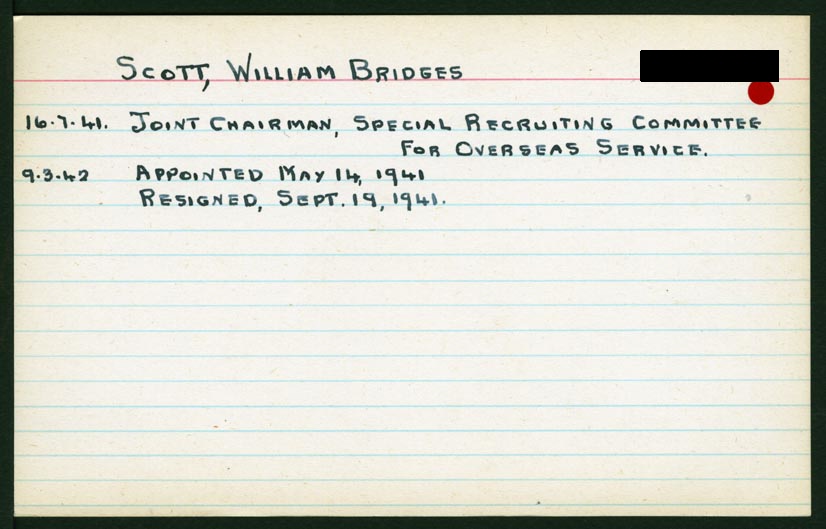 SCOTT, WILLIAM BRIDGES
16.7.41. JOINT CHAIRMAN, SPECIAL RECRUITING COMMITTEE
FOR OVERSEAS SERVICE.
9.3.42 APPOINTED MAY 14, 1941
RESIGNED, SEPT. 19, 1941.